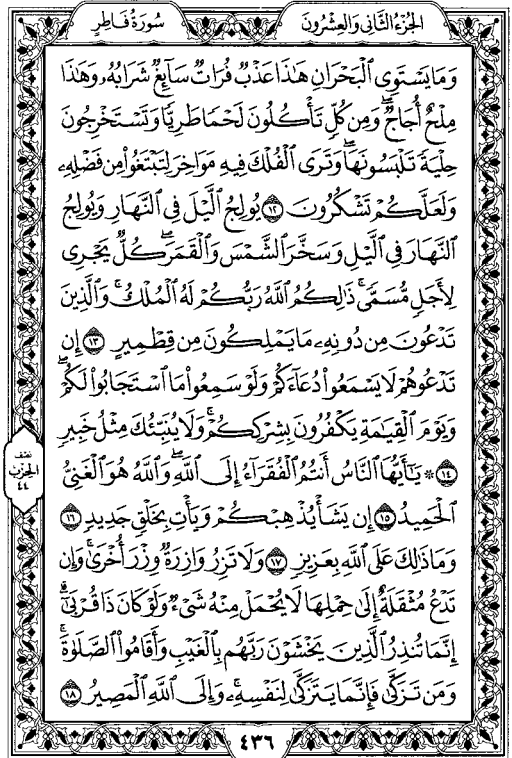 الجزء الثاني والعشرون
سورة فاطر
وَمَا يَسْتَوِي الْبَحْرَانِ هَٰذَا عَذْبٌ فُرَاتٌ سَآئِغٌ شَرَابُهُۥ وَهَٰذَا
مِلْحٌ أُجَاجٌ ۖ وَمِن كُلٍّ تَأْكُلُونَ لَحْمًا طَرِيًّا وَتَسْتَخْرِجُونَ
حِلْيَةً تَلْبَسُونَهَا ۖ وَتَرَى الْفُلْكَ فِيهِ مَوَاخِرَ لِتَبْتَغُوا۟ مِن فَضْلِهِۦ
وَلَعَلَّكُمْ تَشْكُرُونَ ١٢ يُولِجُ الَّيْلَ فِي النَّهَارِ وَيُولِجُ
النَّهَارَ فِي الَّيْلِ وَسَخَّرَ الشَّمْسَ وَالْقَمَرَ ۖ كُلٌّ يَجْرِي
لِأَجَلٍ مُّسَمًّى ۚ ذَٰلِكُمُ اللَّهُ رَبُّكُمْ لَهُ الْمُلْكُ ۚ وَالَّذِينَ
تَدْعُونَ مِن دُونِهِۦ مَا يَمْلِكُونَ مِن قِطْمِيرٍ ١٣ إِن
تَدْعُوهُمْ لَا يَسْمَعُوا۟ دُعَآءَكُمْ وَلَوْ سَمِعُوا۟ مَا اسْتَجَابُوا۟ لَكُمْ ۖ
وَيَوْمَ الْقِيَٰمَةِ يَكْفُرُونَ بِشِرْكِكُمْ ۚ وَلَا يُنَبِّئُكَ مِثْلُ خَبِيرٍ
١٤ ۞ يَٰٓأَيُّهَا النَّاسُ أَنتُمُ الْفُقَرَآءُ إِلَى اللَّهِ ۖ وَاللَّهُ هُوَ الْغَنِيُّ
الْحَمِيدُ ١٥ إِن يَشَأْ يُذْهِبْكُمْ وَيَأْتِ بِخَلْقٍ جَدِيدٍ ١٦
وَمَا ذَٰلِكَ عَلَى اللَّهِ بِعَزِيزٍ ١٧ وَلَا تَزِرُ وَازِرَةٌ وِزْرَ أُخْرَىٰ ۚ وَإِن
تَدْعُ مُثْقَلَةٌ إِلَىٰ حِمْلِهَا لَا يُحْمَلْ مِنْهُ شَيْءٌ وَلَوْ كَانَ ذَا قُرْبَىٰٓ ۗ
إِنَّمَا تُنذِرُ الَّذِينَ يَخْشَوْنَ رَبَّهُم بِالْغَيْبِ وَأَقَامُوا۟ الصَّلَوٰةَ ۚ
وَمَن تَزَكَّىٰ فَإِنَّمَا يَتَزَكَّىٰ لِنَفْسِهِۦ ۚ وَإِلَى اللَّهِ الْمَصِيرُ ١٨
نصف
الحزب
٤٤
٤٣٦